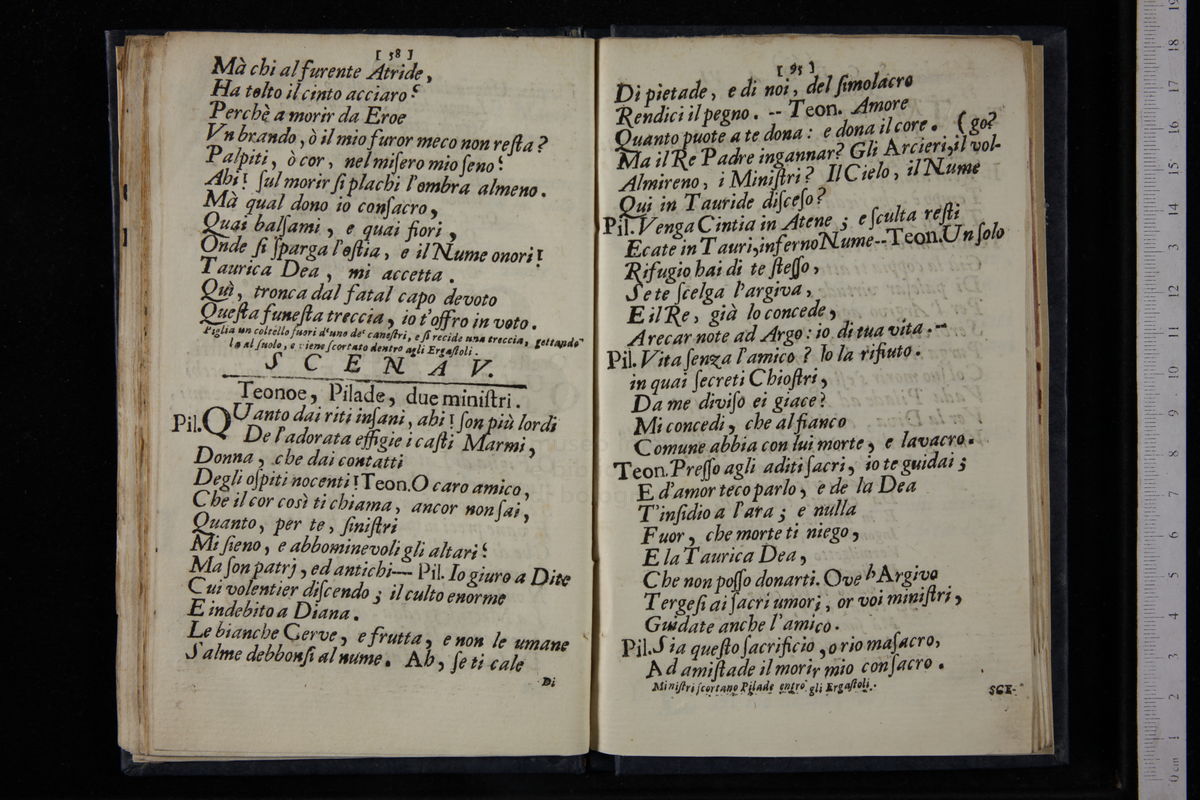 [ 58 ]
Mà chi al furente Atride,
Ha tolto il cinto acciaro?
Perchè a morir da Eroe
Vn brando, ò il mio furor meco non resta?
Palpiti, ò cor, nel misero mio seno?
Ahi! sul morir si plachi l'ombra almeno.
Mà qual dono io consacro,
Quai balsami, e quai fiori,
Onde si sparga l'ostia, e il Nume onori!
Taurica Dea, mi accetta.
Quì, tronca dal fatal capo devoto
Questa funesta treccia, io t'offro in voto.
Piglia un coltello fuori d'uno de' canestri, e si recide una treccia, gettando-
la al suolo, e viene scortato dentro agli Ergastoli.
SCENA V.
Teonoe, Pilade, due ministri.
Pil. QUanto dai riti insani, ahi! son più lordi
De l'adorata effigie i casti Marmi,
Donna, che dai contatti
Degli ospiti nocenti! Teon. O caro amico,
Che il cor così ti chiama, ancor non sai,
Quanto, per te, sinistri
Mi sieno, e abbominevoli gli altari?
Ma son patrj, ed antichi— Pil. Io giuro a Dite
Cui volentier discendo; il culto enorme
E indebito a Diana.
Le bianche Cerve, e frutta, e non le umane
Salme debbonsi al nume. Ah, se ti cale
Di
[ 95 ]
Di pietade, e di noi, del simolacro
Rendici il pegno. -- Teon. Amore
Quanto puote a te dona: e dona il core. (go?
Ma il Re Padre ingannar? Gli Arcieri, il vol-
Almireno, i Ministri? Il Cielo, il Nume
Qui in Tauride disceso?
Pil. Venga Cintia in Atene; e sculta resti
Ecate in Tauri, inferno Nume -- Teon. Un solo
Rifugio hai di te stesso,
Se te scelga l'argiva,
E il Re, già lo concede,
A recar note ad Argo: io di tua vita. --
Pil. Vita senza l'amico? Io la rifiuto.
in quai secreti Chiostri,
Da me diviso ei giace?
Mi concedi, che al fianco
Comune abbia con lui morte, e lavacro.
Teon. Presso agli aditi sacri, io te guidai;
E d'amor teco parlo, e de la Dea
T'insidio a l'ara; e nulla
Fuor, che morte ti niego,
E la Taurica Dea,
Che non posso donarti. Ove l'Argivo
Tergesi ai sacri umori, or voi ministri,
Guidate anche l'amico.
Pil. Sia questo sacrificio, o rio masacro,
Ad amistade il morir mio consacro.
Ministri scortano Pilade entro gli Ergastoli.
SCE-